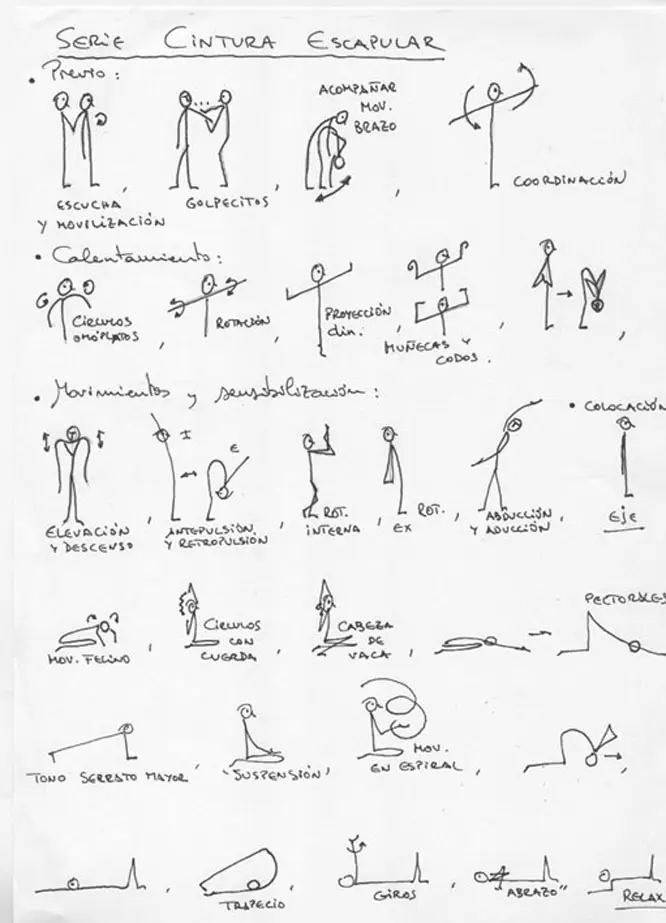 SERIE CINTURA ESCAPULAR
• Previo:
ESCUCHA
Y MOVILIZACIÓN,
GOLPECITOS,
ACOMPAÑAR
MOV.
BRAZO,
COORDINACIÓN
• Calentamiento:
CÍRCULOS
OMÓPLATOS,
ROTACIÓN,
PROYECCIÓN
din.,
MUÑECAS Y
CODOS.,
• Movimientos y sensibilización:
ELEVACIÓN
Y DESCENSO,
I
E
ANTEPULSIÓN
Y RETROPULSIÓN,
ROT.
INTERNA,
ROT.
EX,
ABDUCCIÓN
Y ADUCCIÓN,
• COLOCACIÓN
EJE
MOV. FELINO,
CÍRCULOS
CON
CUERDA,
CABEZA
DE
VACA,
PECTORALES
TONO SERRATO MAYOR,
"SUSPENSIÓN",
MOV.
EN ESPIRAL,
TRAPECIO,
GIROS,
"ABRAZO",
RELAX